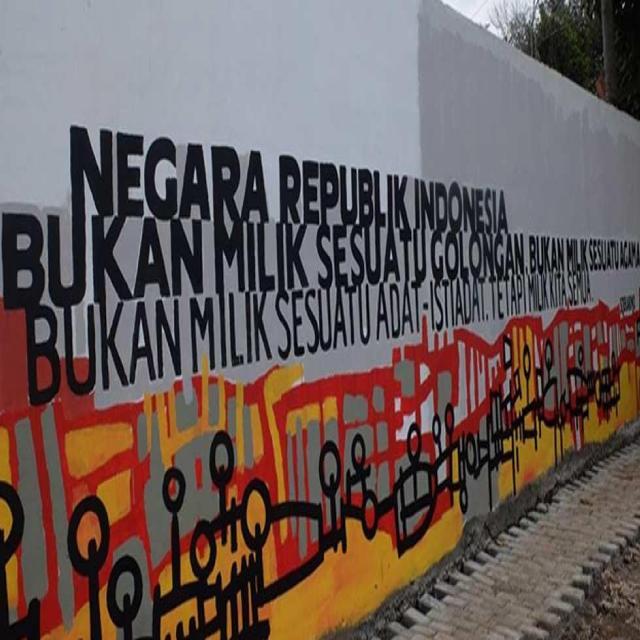 NEGARA REPUBLIK INDONESIA
BUKAN MILIK SESUATU GOLONGAN, BUKAN MILIK SESUATU AGAMA
BUKAN MILIK SESUATU ADAT-ISTIADAT. TETAPI MILIK KITA SEMUA